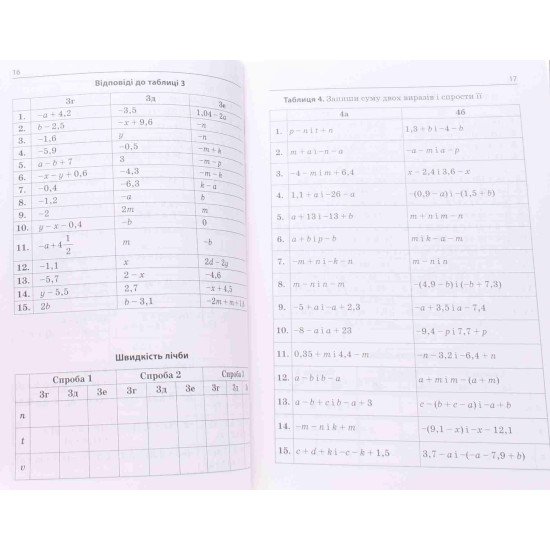 16
Відповіді до таблиці 3
3г 3д 3е
1. –a + 4,2 –3,5 1,04 – 2a
2. b – 2,5 –x + 9,6 –n
3. –1,6 y –n
4. –5,9 –0,5 –m + k
5. a – b + 7 3 –m – p
6. –x – y + 0,6 –4,3 –m – k
7. –0,4 –6,3 k – a
8. –1,2 –a b
9. –2 2m m
10. y – x – 0,4 –b 0
11. –a + 4 1/2 m –b
12. –1,1 x 2d – 2y
13. –5,7 2 – x –4,6
14. y – 5,5 2,7 –x + 4,5
15. 2b b – 3,1
Швидкість лічби
Спроба 1 Спроба 2 Спроба
3г 3д 3е 3г 3д 3е 3г 3д
n
t
v
17
Таблиця 4. Запиши суму двох виразів і спрости її
4а 4б
1. p – n і t + n 1,3 + b і –4 – b
2. m + a і –n – a –a – m і a – p
3. –4 – m і m + 6,4 x – 2,4 і 3,6 – x
4. 1,1 + a і –26 – a –(0,9 – a) і –(1,5 + b)
5. a + 13 і –13 + b m + n і m – n
6. a + b і p – b m і k – a – m
7. –m + n і –k – n m – n і n
8. m – n і n – m –(4,9 – b) і –(7,1 + b)
9. –5 + a і –a + 2 –a + 3,5 і a – 7,4
10. –8 – a і a + 23 –9,4 – p і 7,7 + p
11. 0,35 + m і 4,4 – m –n – 3,2 і –6,4 + n
12. a – b і b – a a + m і m – (a + m)
13. a – b + c і b – a + 3 c – (b + c – a) і –a + b
14. –m – n і k + m –(9,1 – x) і –x – 12,1
15. c + d + k і –c – k + 1,5 3,7 – a і –(–a – 7,9 + b)